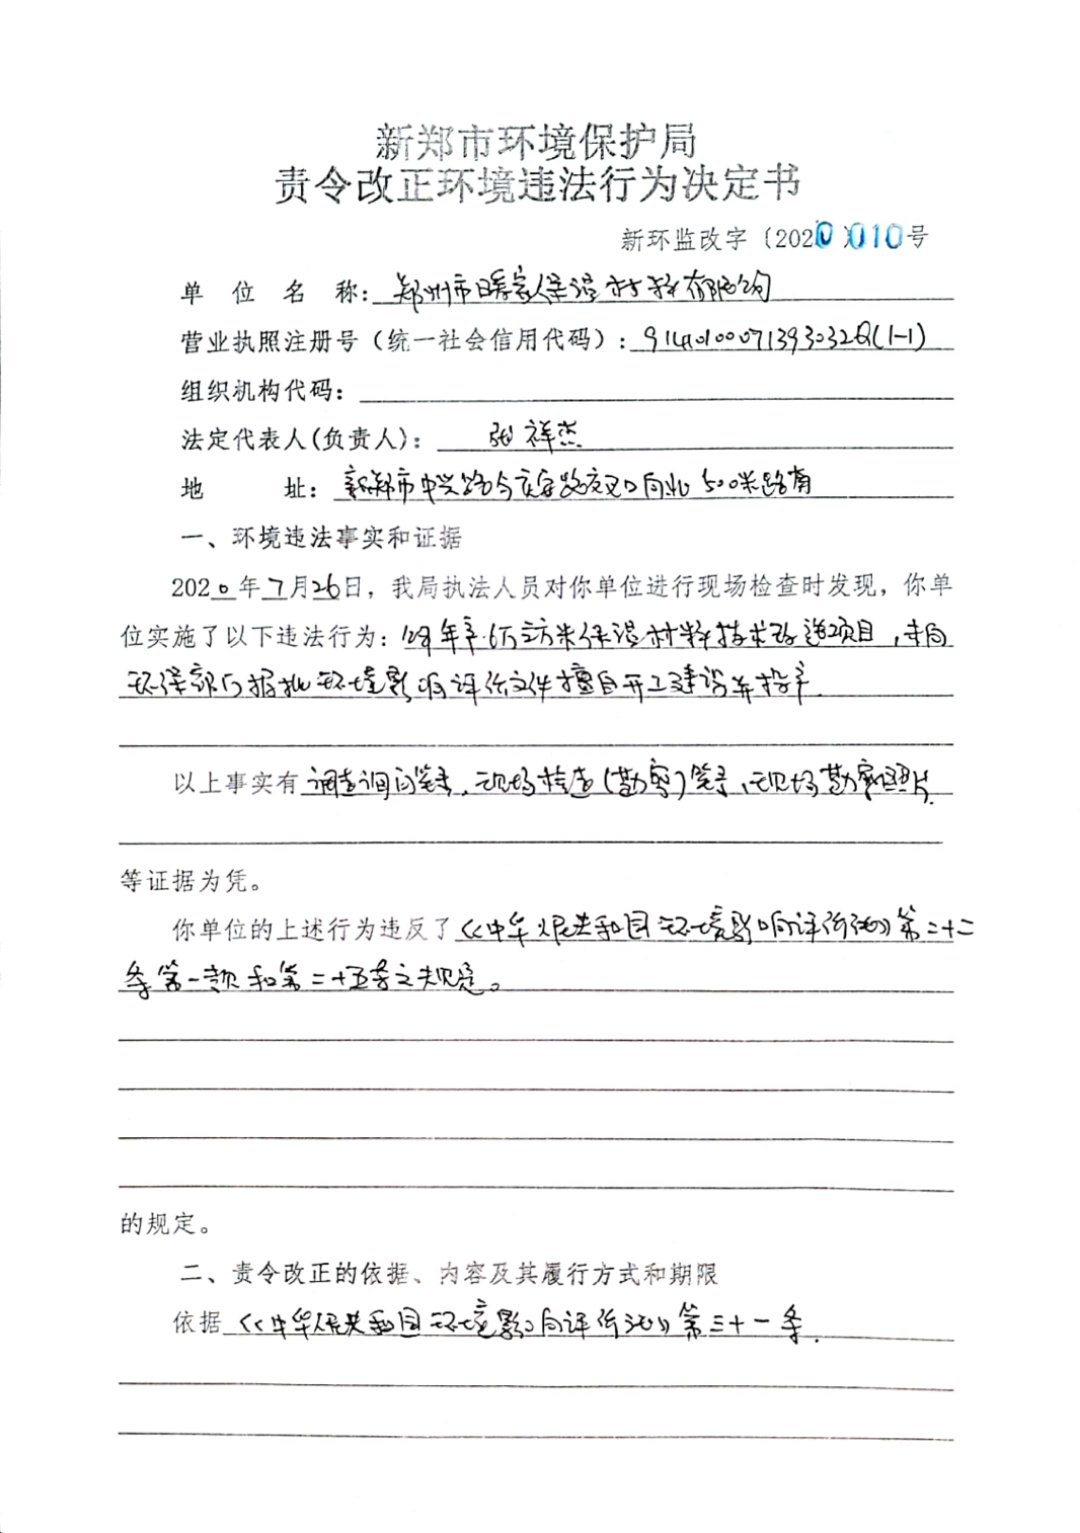 新郑市环境保护局
责令改正环境违法行为决定书
新环监改字〔2020〕010号
单 位 名 称：郑州市暖家保温材料有限公司
营业执照注册号（统一社会信用代码）：91410100071393032Q(1-1)
组织机构代码：
法定代表人(负责人)： 张祥杰
地 址：新郑市中兴路与庆安路交叉口向北500米路南
一、环境违法事实和证据
2020年7月26日，我局执法人员对你单位进行现场检查时发现，你单
位实施了以下违法行为：年产6万立方米保温材料技术改造项目，未向
环保部门报批环境影响评价文件擅自开工建设并投产.
以上事实有调查询问笔录、现场检查(勘察)笔录、现场勘察照片.
等证据为凭。
你单位的上述行为违反了《中华人民共和国环境影响评价法》第二十二
条第一款和第二十五条之规定。
的规定。
二、责令改正的依据、内容及其履行方式和期限
依据《中华人民共和国环境影响评价法》第三十一条.